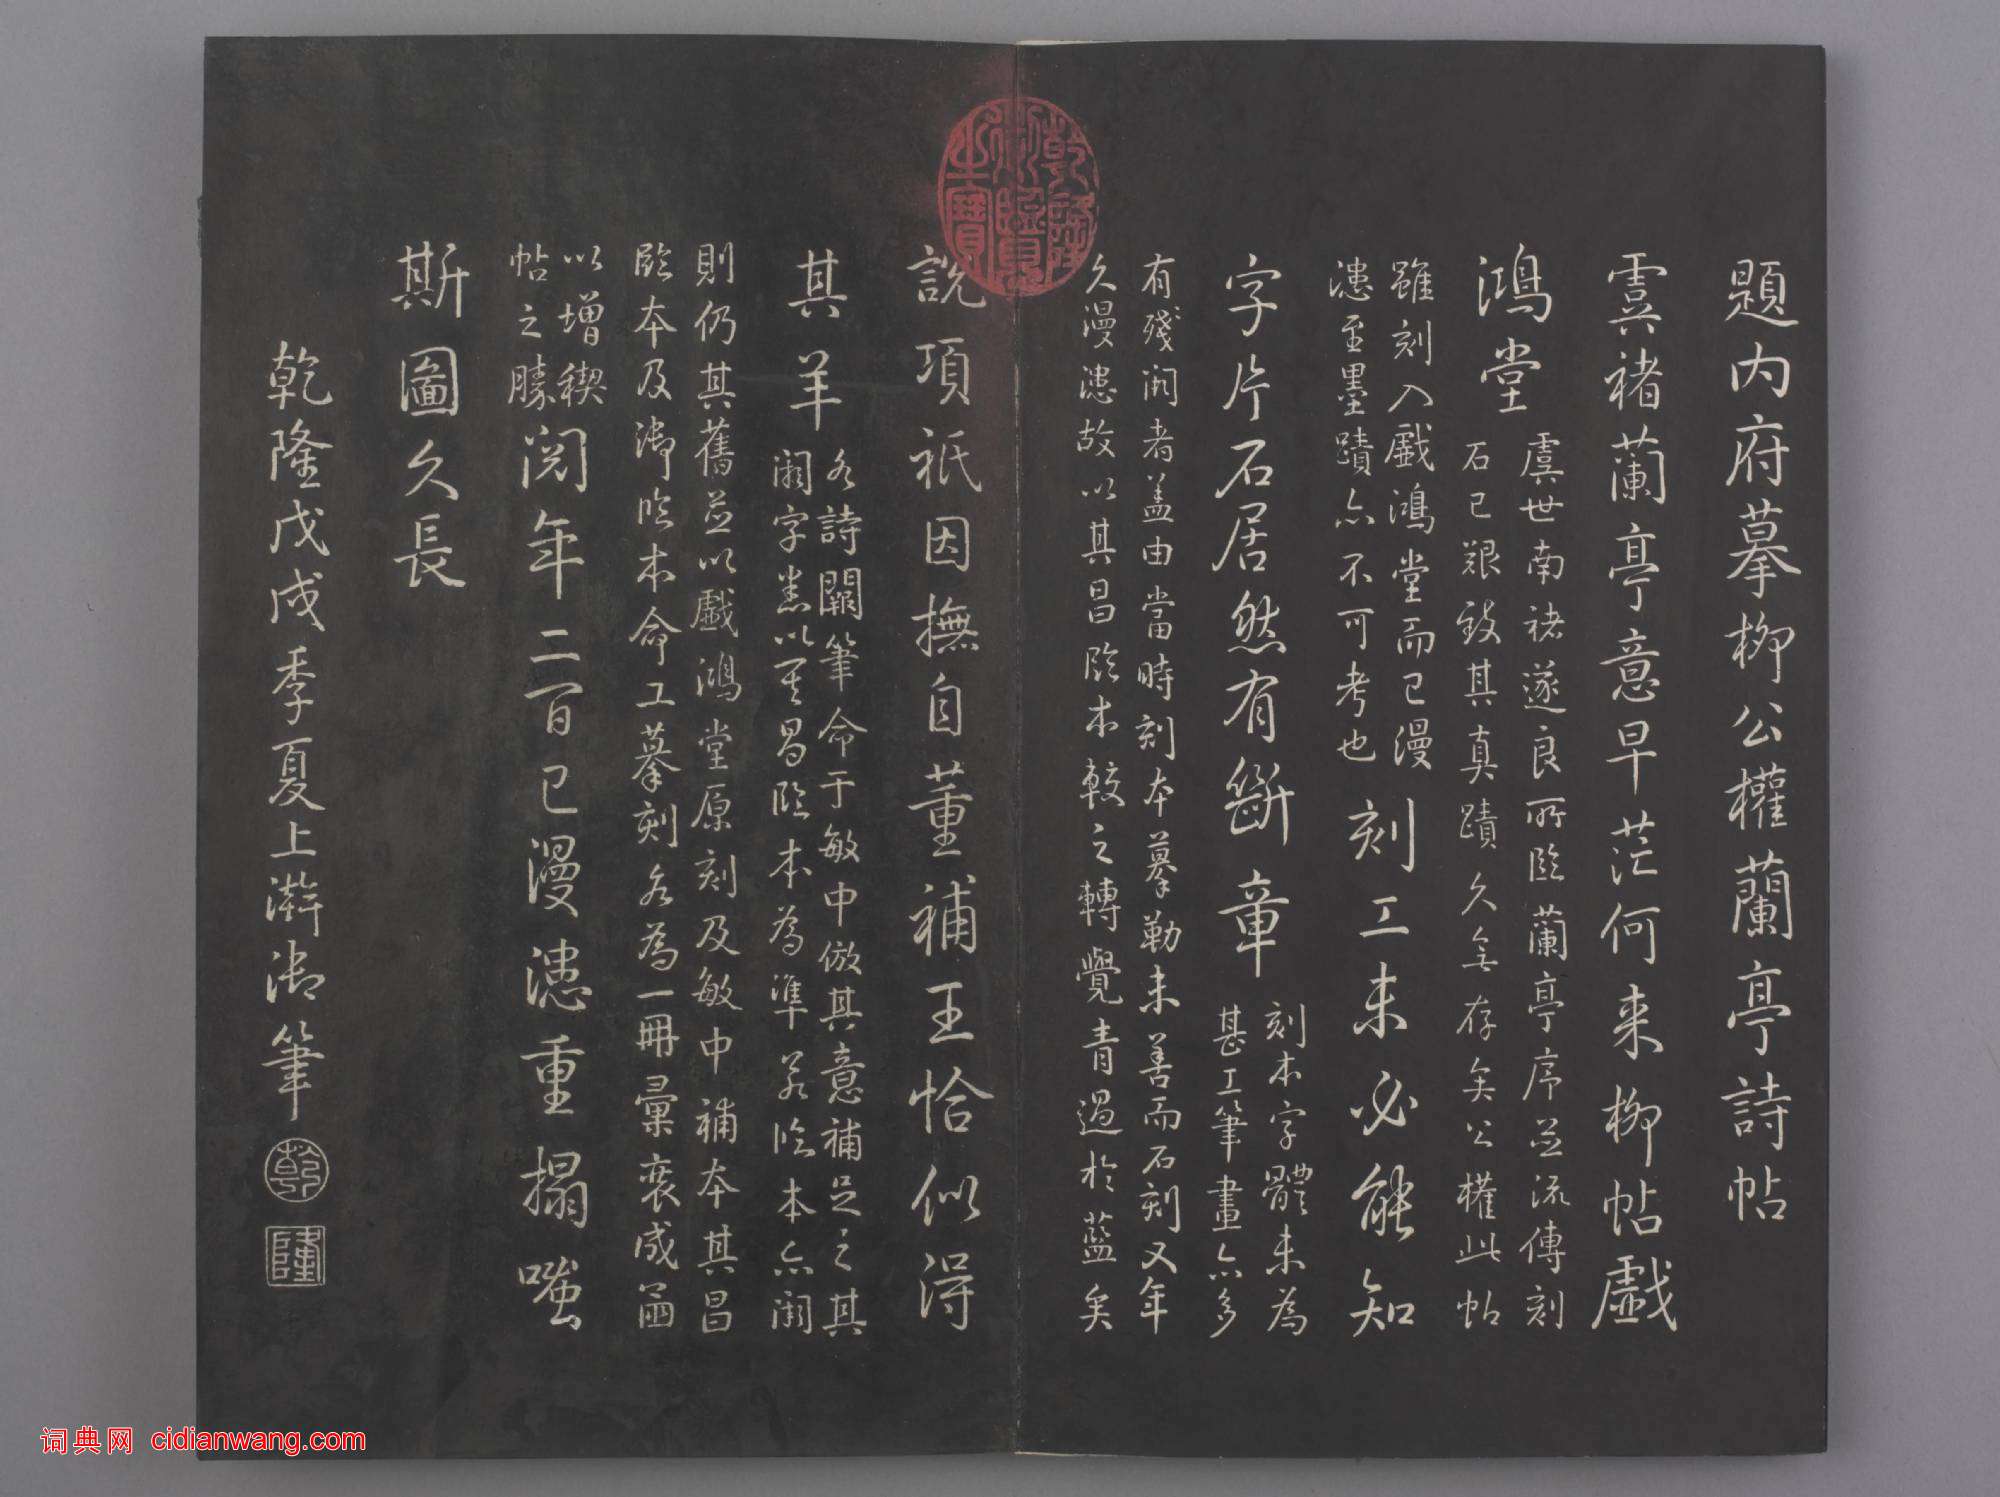 題内府摹柳公權蘭亭詩帖
虞褚蘭亭意早茫何来柳帖戲
鴻堂
虞世南褚遂良所臨蘭亭序並流傳刻
石已艱致其真蹟久無存矣公權此帖
雖刻入戲鴻堂而已漫
漶至墨蹟亦不可考也
刻工未必能知
字片石居然有斷章
刻本字體未為
甚工筆畫亦多
有殘闕者盖由當時刻本摹勒未善而石刻又年
久漫漶故以其昌臨本較之轉覺青過於藍矣
乾隆御覽之寶
說項祇因撫自董補王恰似得
其羊
各詩闕筆命于敏中倣其意補足之其
闕字悉以其昌臨本為準若臨本亦闕
則仍其舊並以戲鴻堂原刻及敏中補本其昌
臨本及御臨本命工摹刻各為一冊彙裒成函
以增稧
帖之勝
閱年二百已漫漶重搨嗤
斯圖久長
乾隆戊戌季夏上澣御筆
乾
隆
词典网 cidianwang.com